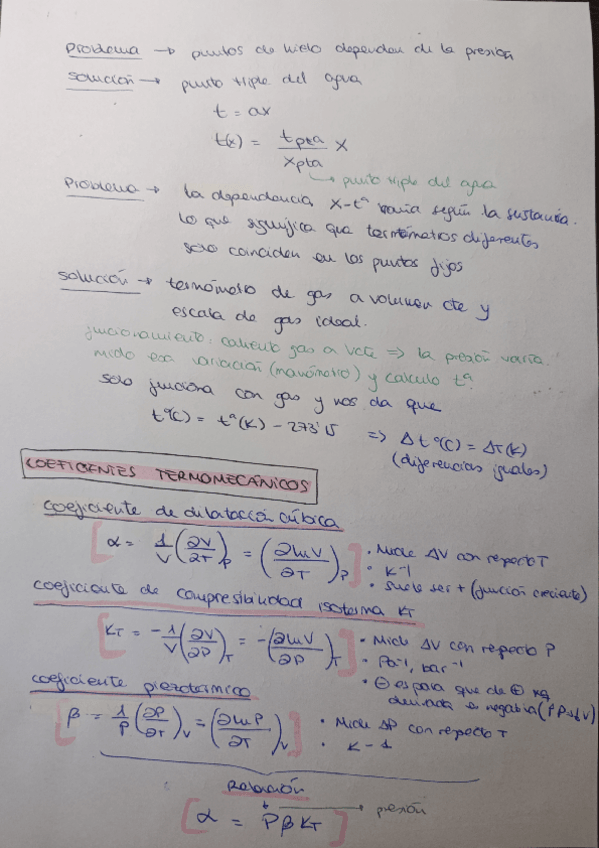 Problema → puntos de hielo dependen de la presión
Solución → punto triple del agua
t = ax
t(x) = t_pta / x_pta x
→ punto triple del agua
Problema → la dependencia x-tª varía según la sustancia.
lo que significa que termómetros diferentes
solo coinciden en los puntos fijos
Solución → termómetro de gas a volumen cte y
escala de gas ideal.
funcionamiento: caliento gas a Vcte => la presión varía.
mido esa variación (manómetro) y calculo tª.
solo funciona con gas y nos da que
tª(C) = tª(K) - 273'15 => Δtª(C) = ΔT(K)
(diferencias iguales)
COEFICENTES TERMOMECÁNICOS
coeficiente de dilatación cúbica
[α = 1/V (∂V/∂T)_P = (∂lnV/∂T)_P] • Mide ΔV con respecto T
• K⁻¹
• Suele ser + (función creciente)
coeficiente de compresibilidad isoterma KT
[KT = -1/V (∂V/∂P)_T = -(∂lnV/∂P)_T] • Mide ΔV con respecto P
• Pa⁻¹, bar⁻¹
• ⊖ es para que de ⊕ xq
derivada es negativa (↑P ⇒ ↓V)
coeficiente piezotérmico
[β = 1/P (∂P/∂T)_V = (∂lnP/∂T)_V] • Mide ΔP con respecto T
• K-1
Relación
[α = PβKT] → presión